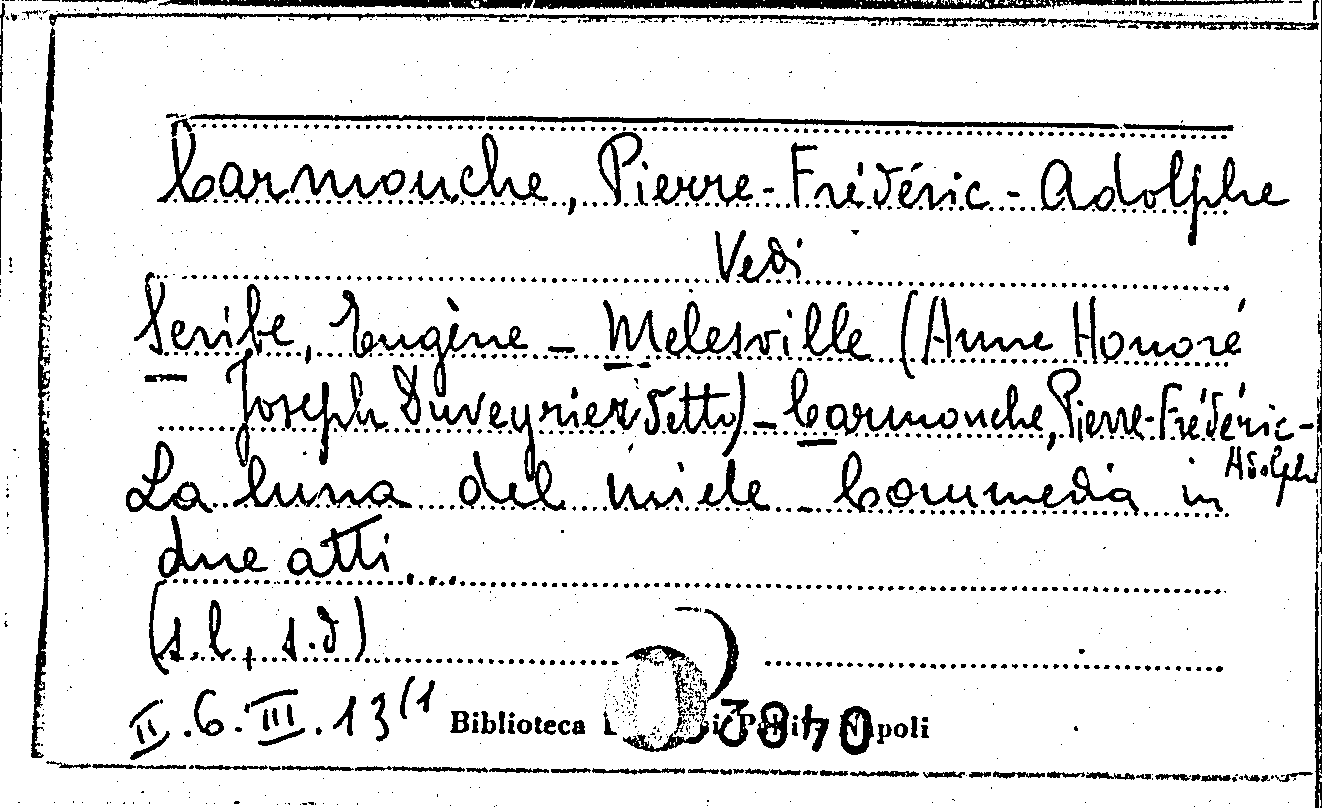 Carmouche, Pierre-Frédéric-Adolphe
Vedi
Scribe, Eugène - Melesville (Anne Honoré
Joseph Duveyrier detto) - Carmouche, Pierre-Frédéric-
Adolphe
La luna del miele. Commedia in
due atti...
(s.l., s.d)
II.6.III.13(1
Biblioteca Napoli